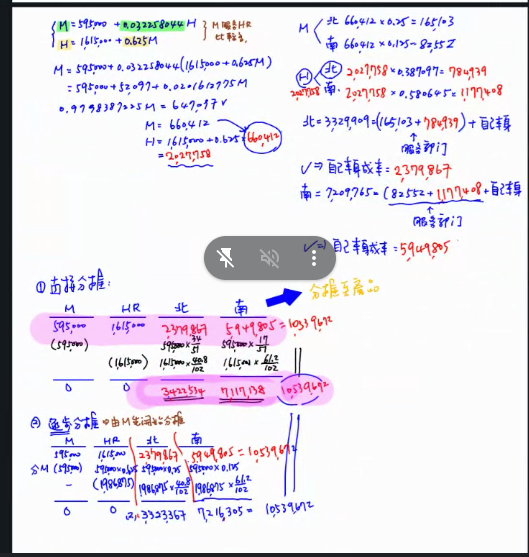 M = 595,000 + 0.032258044 H
H = 1615,000 + 0.625M
M 服務HR
M = 595,000 + 0.032258044 (1615,000 + 0.625M)
= 595,000 + 52,097 + 0.0201612775M
0.9798387225M = 647,097
M = 660,412
H = 1615,000 + 0.625 × 660,412
= 2,027,758
M
北 660,412 × 0.25 = 165,103
南 660,412 × 0.125 = 82552
H
2,027,758
北 2,027,758 × 0.387097 = 784,939
南 2,027,758 × 0.580645 = 1,177,408
北 = 3,329,909 = (165,103 + 784,939) + 自己本身
服務部門
✓ ⇒ 自己本身成本 = 2,379,867
南 = 7,209,765 = (82552 + 1,177,408 + 自己本身
服務部門
✓ ⇒ 自己本身成本 = 5,949,805
① 直接分攤:
分攤至產品
M HR 北 南
595,000 1,615,000 2,379,867 5,949,805 = 10,539,672
(595,000) 595,000 × 34/51 595,000 × 17/51
(1,615,000) 1,615,000 × 40.8/102 1,615,000 × 61.2/102
0 0 3,422,534 7,117,138 10,539,672
② 逐步分攤 由M先開始分攤
M HR 北 南
595,000 1,615,000 2,379,867 5,949,805 = 10,539,672
分M (595,000) 595,000 × 0.625 595,000 × 0.25 595,000 × 0.125
- (1,986,875) 1,986,875 × 40.8/102 1,986,875 × 61.2/102
0 0 3,323,367 7,216,305 = 10,539,672